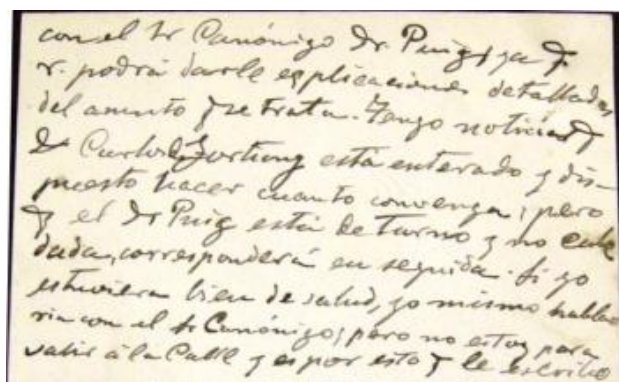 con el Sr Canónigo Dr. Puig, ya q.
v. podrá darle explicaciones detalladas
del asunto q se trata. Tengo noticias q
D Carlos está enterado y dis-
puesto hacer cuanto convenga; pero
q el Dr Puig está de turno y no cabe
duda, corresponderá en seguida. Si yo
estuviera bien de salud, yo mismo habla-
ria con el Sr Canónigo; pero no estoy para
salir á la Calle y es por esto q le escribo